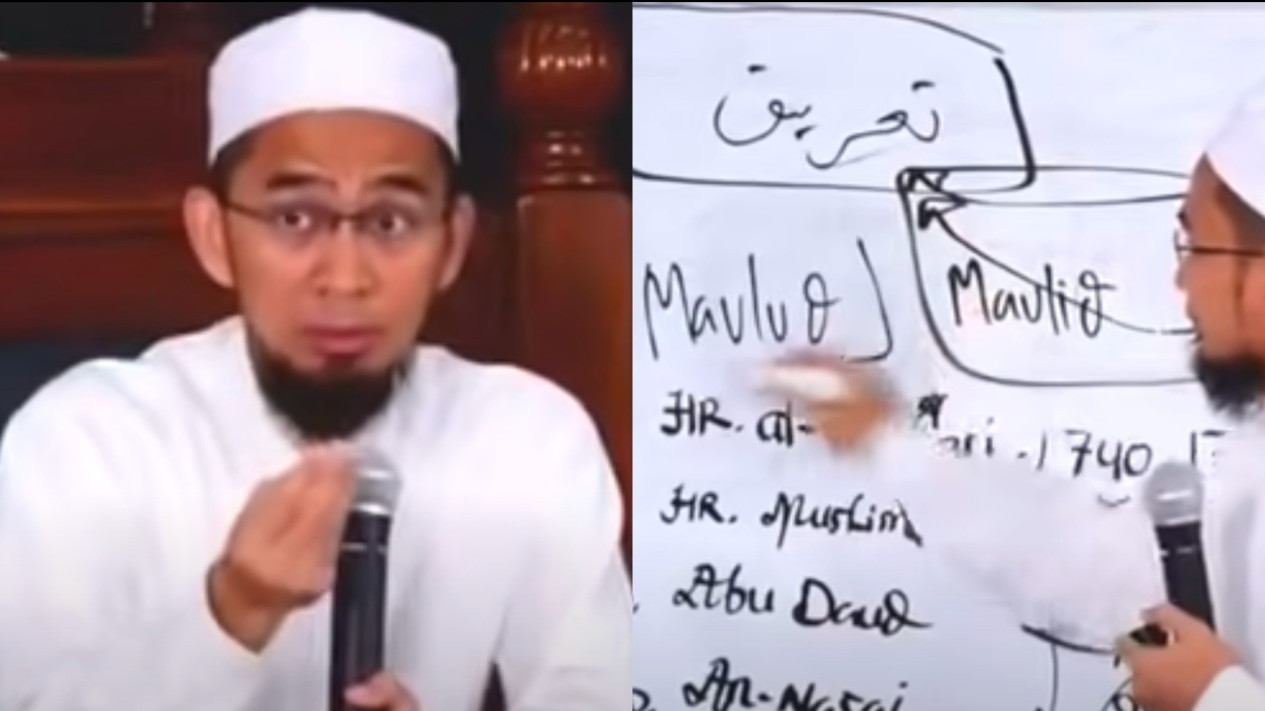 تعريف
Maulud Maulid
HR. al- ari - 1740
HR. Muslim
Abu Daud
An-Nasai